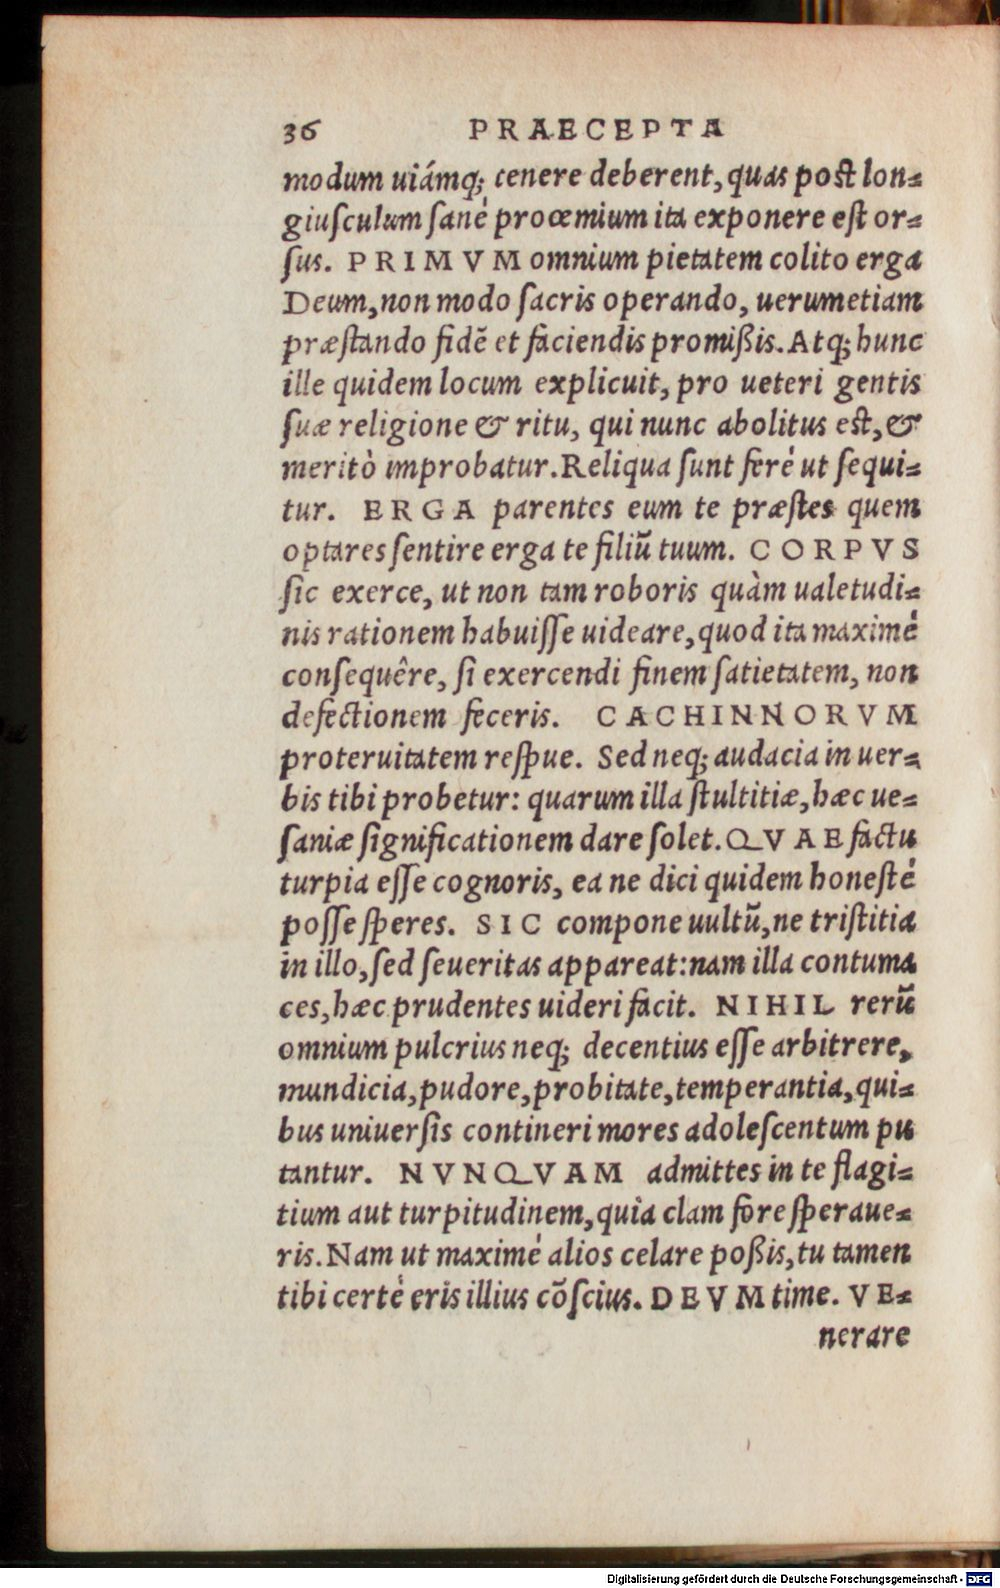 36 PRAECEPTA
modum uiámq; tenere deberent, quas post lon-
giusculum sanè proœmium ita exponere est or-
sus. PRIMVM omnium pietatem colito erga
Deum, non modo sacris operando, uerumetiam
præstando fidē et faciendis promißis. Atq; hunc
ille quidem locum explicuit, pro ueteri gentis
suæ religione & ritu, qui nunc abolitus est, &
meritò improbatur. Reliqua sunt ferè ut sequi-
tur. ERGA parentes eum te præstes quem
optares sentire erga te filiū tuum. CORPVS
sic exerce, ut non tam roboris quàm ualetudi-
nis rationem habuisse uideare, quod ita maximè
consequêre, si exercendi finem satietatem, non
defectionem feceris. CACHINNORVM
proteruitatem respue. Sed neq; audacia in uer-
bis tibi probetur: quarum illa stultitiæ, hæc ue-
saniæ significationem dare solet. QVAE factu
turpia esse cognoris, ea ne dici quidem honestè
posse speres. SIC compone uultū, ne tristitia
in illo, sed seueritas appareat: nam illa contuma
ces, hæc prudentes uideri facit. NIHIL rerū
omnium pulcrius neq; decentius esse arbitrere,
mundicia, pudore, probitate, temperantia, qui-
bus uniuersis contineri mores adolescentum pu
tantur. NVNQVAM admittes in te flagi-
tium aut turpitudinem, quia clam fore speraue-
ris. Nam ut maximè alios celare poßis, tu tamen
tibi certè eris illius cōscius. DEVM time. VE-
nerare
Digitalisierung gefördert durch die Deutsche Forschungsgemeinschaft - DFG